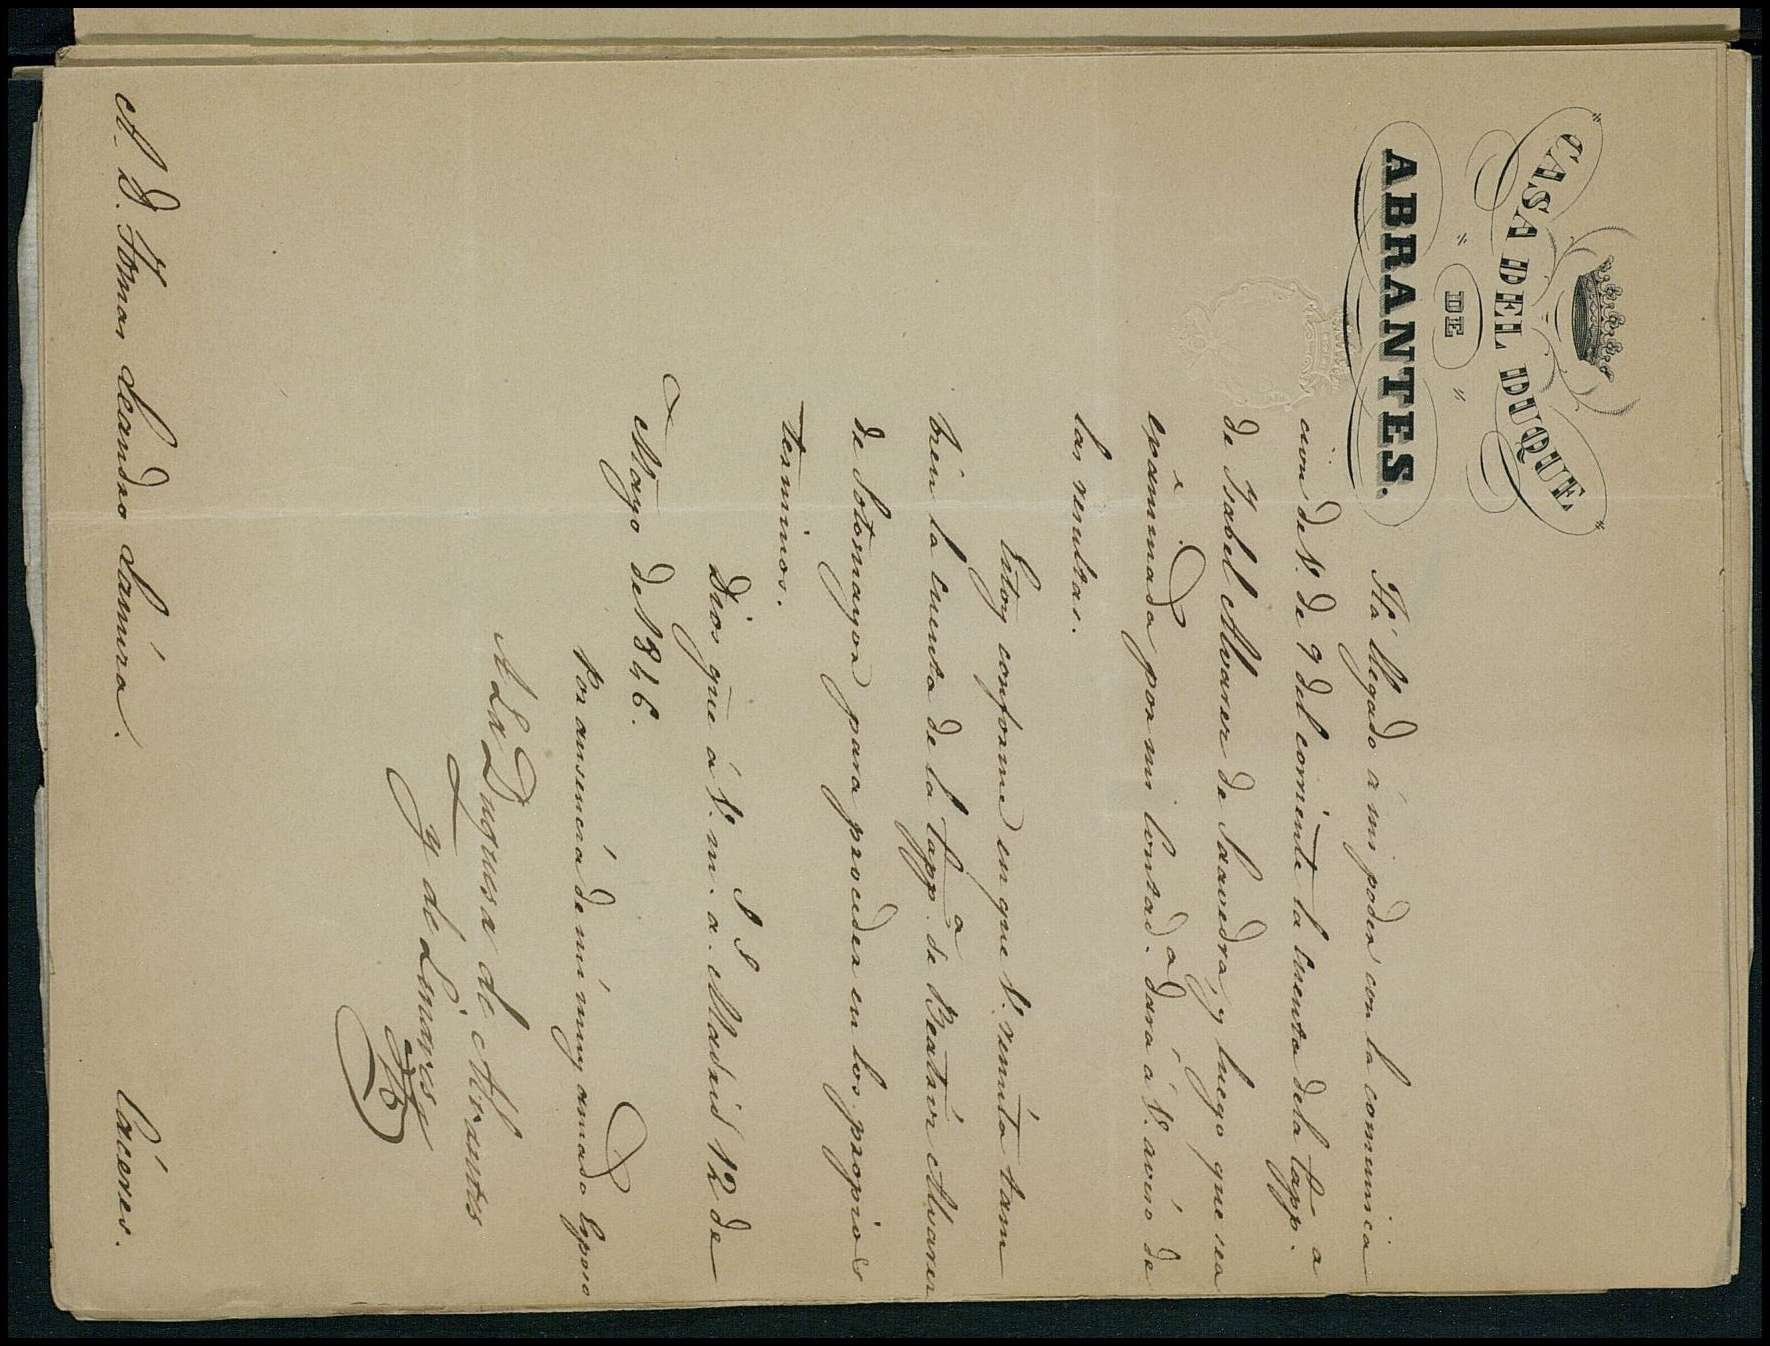 CASA DEL DUQUE
DE
ABRANTES.
Há llegado á mi poder con la comunica
cion de V. de 9 del corriente la cuenta de la Capp.ª
de Isabel Alvarez de Saavedra, y luego que sea
exáminada por mi Contad.ª dará á V. aviso de
las resultas.
Estoy conforme en que V. remita tam
bien la cuenta de la Capp.ª de Beatriz Alvarez
de Sotomayor para proceder en los propios
terminos.
Dios gue á V. m.s a.s Madrid 12 de
Mayo de 1846.
Por ausencia de mi muy amado Esposo
La Duquesa de Abrantes
y de Linares
A D. Tomas Leandro Lamira.
Cáceres.